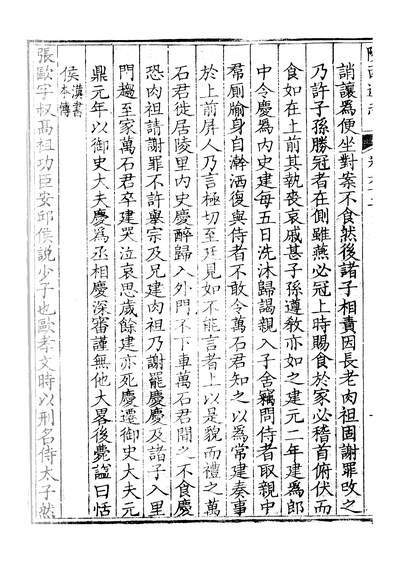 誚讓爲便坐對案不食然後諸子相責因長老肉袒固謝罪改之
乃許子孫勝冠者在側雖燕必冠上時賜食於家必稽首俯伏而
食如在上前其執喪哀戚甚子孫遵敎亦如之建元二年建爲郎
中令慶爲內史建每五日洗沐歸謁親入子舍竊問侍者取親中
帬厠牏身自澣洒復與侍者不敢令萬石君知之以爲常建奏事
於上前屏人乃言極切至廷見如不能言者上以是貌而禮之萬
石君徙居陵里內史慶醉歸入外門不下車萬石君聞之不食慶
恐肉袒請謝罪不許舉宗及兄建肉袒乃謝罷慶慶及諸子入里
門趨至家萬石君卒建哭泣哀思歲餘建亦死慶遷御史大夫元
鼎元年以御史大夫慶爲丞相慶深審謹無他大畧後薨謚曰恬
侯漢書本傳
張歐字叔高祖功臣安邱侯說少子也歐孝文時以刑名侍太子然